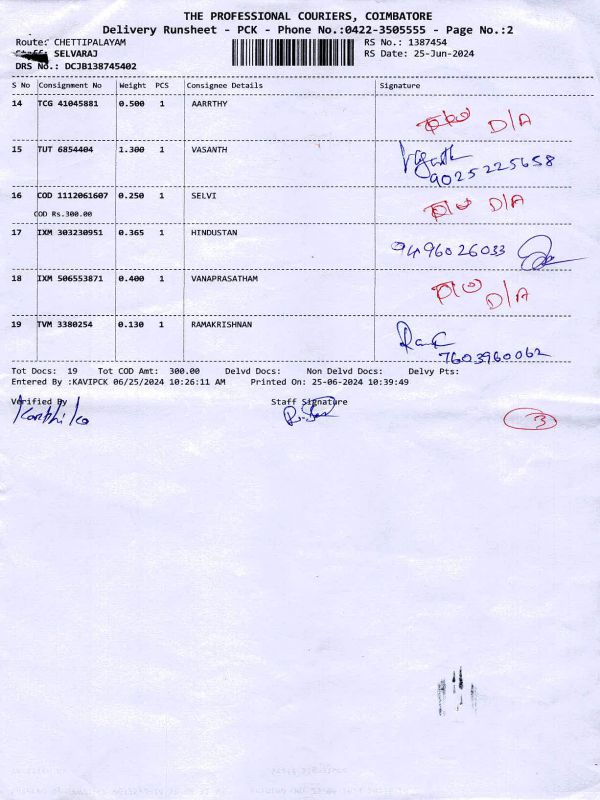 THE PROFESSIONAL COURIERS, COIMBATORE
Delivery Runsheet - PCK - Phone No.:0422-3505555 - Page No.:2
Route: CHETTIPALAYAM RS No.: 1387454
SELVARAJ RS Date: 25-Jun-2024
DRS No.: DCJB138745402
S No Consignment No Weight PCS Consignee Details Signature
14 TCG 41045881 0.500 1 AARRTHY
D/A
15 TUT 6854404 1.300 1 VASANTH
Vasanth
9025225658
16 COD 1112061607 0.250 1 SELVI
D/A
COD Rs.300.00
17 IXM 303230951 0.365 1 HINDUSTAN
9496026033
18 IXM 506553871 0.400 1 VANAPRASATHAM
D/A
19 TVM 3380254 0.130 1 RAMAKRISHNAN
7603960062
Tot Docs: 19 Tot COD Amt: 300.00 Delvd Docs: Non Delvd Docs: Delvy Pts:
Entered By :KAVIPCK 06/25/2024 10:26:11 AM Printed On: 25-06-2024 10:39:49
Verified By Staff Signature
3